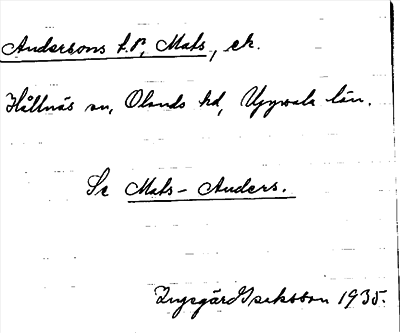 Andersons t.p., Mats, ek.
Hållnäs sn, Olands hd, Uppsala län.
Se Mats-Anders.
Ingegärd Isaksson 1935.